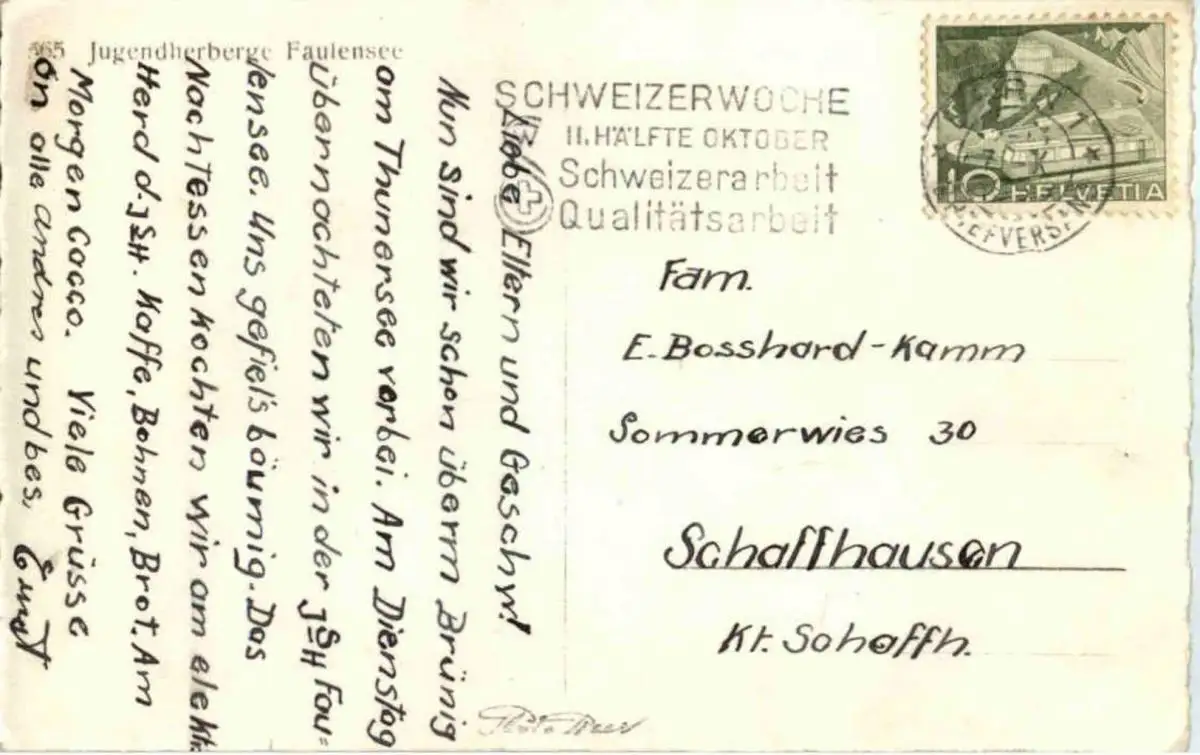 Jugendherberge Faulensee
Liebe Eltern und Geschw!
Nun sind wir schon überm Brünig
am Thunersee vorbei. Am Dienstag
übernachteten wir in der JSH Fau=
lensee. Uns gefiel's bäumig. Das
Nachtessen kochten wir am elektr.
Herd d. JSH. Kaffe, Bohnen, Brot. Am
Morgen Cacco. Viele Grüsse
an alle andres und bes,
Ernst
SCHWEIZERWOCHE
II. HÄLFTE OKTOBER
Schweizerarbeit
Qualitätsarbeit
10 HELVETIA
Fam.
E. Bosshard-Kamm
Sommerwies 30
Schaffhausen
Kt. Schaffh.